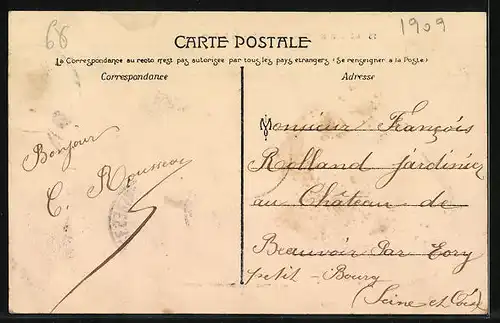 68
1909
CARTE POSTALE
La Correspondance au recto n'est pas autorisée par tous les pays étrangers (Se renseigner à la Poste)
Correspondance
Adresse
Bonjour
C.
Monsieur François
Rolland jardinier
au Château de
Beauvoir Par Evry
petit-Bourg
(Seine et Oise